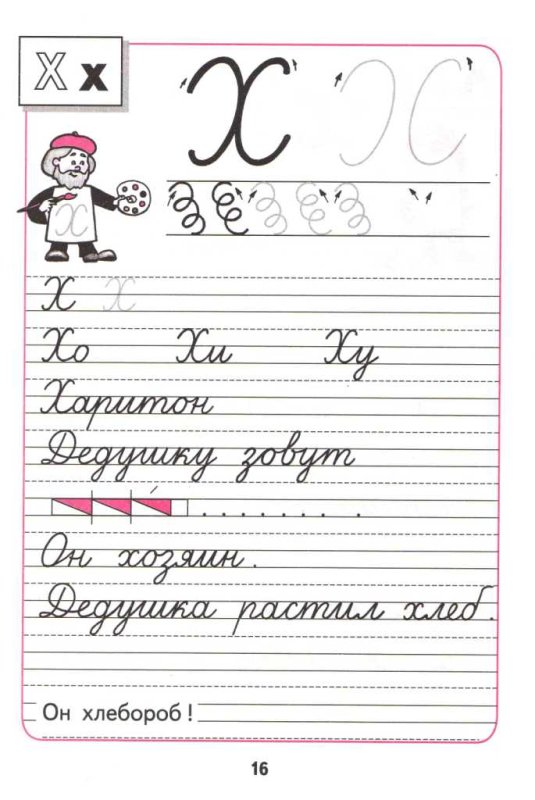 Х х
Х Х
Х
Х Х
Хо Хи Ху
Харитон
Дедушку зовут
. . . . . . . .
Он хозяин.
Дедушка растил хлеб.
Он хлебороб!
16